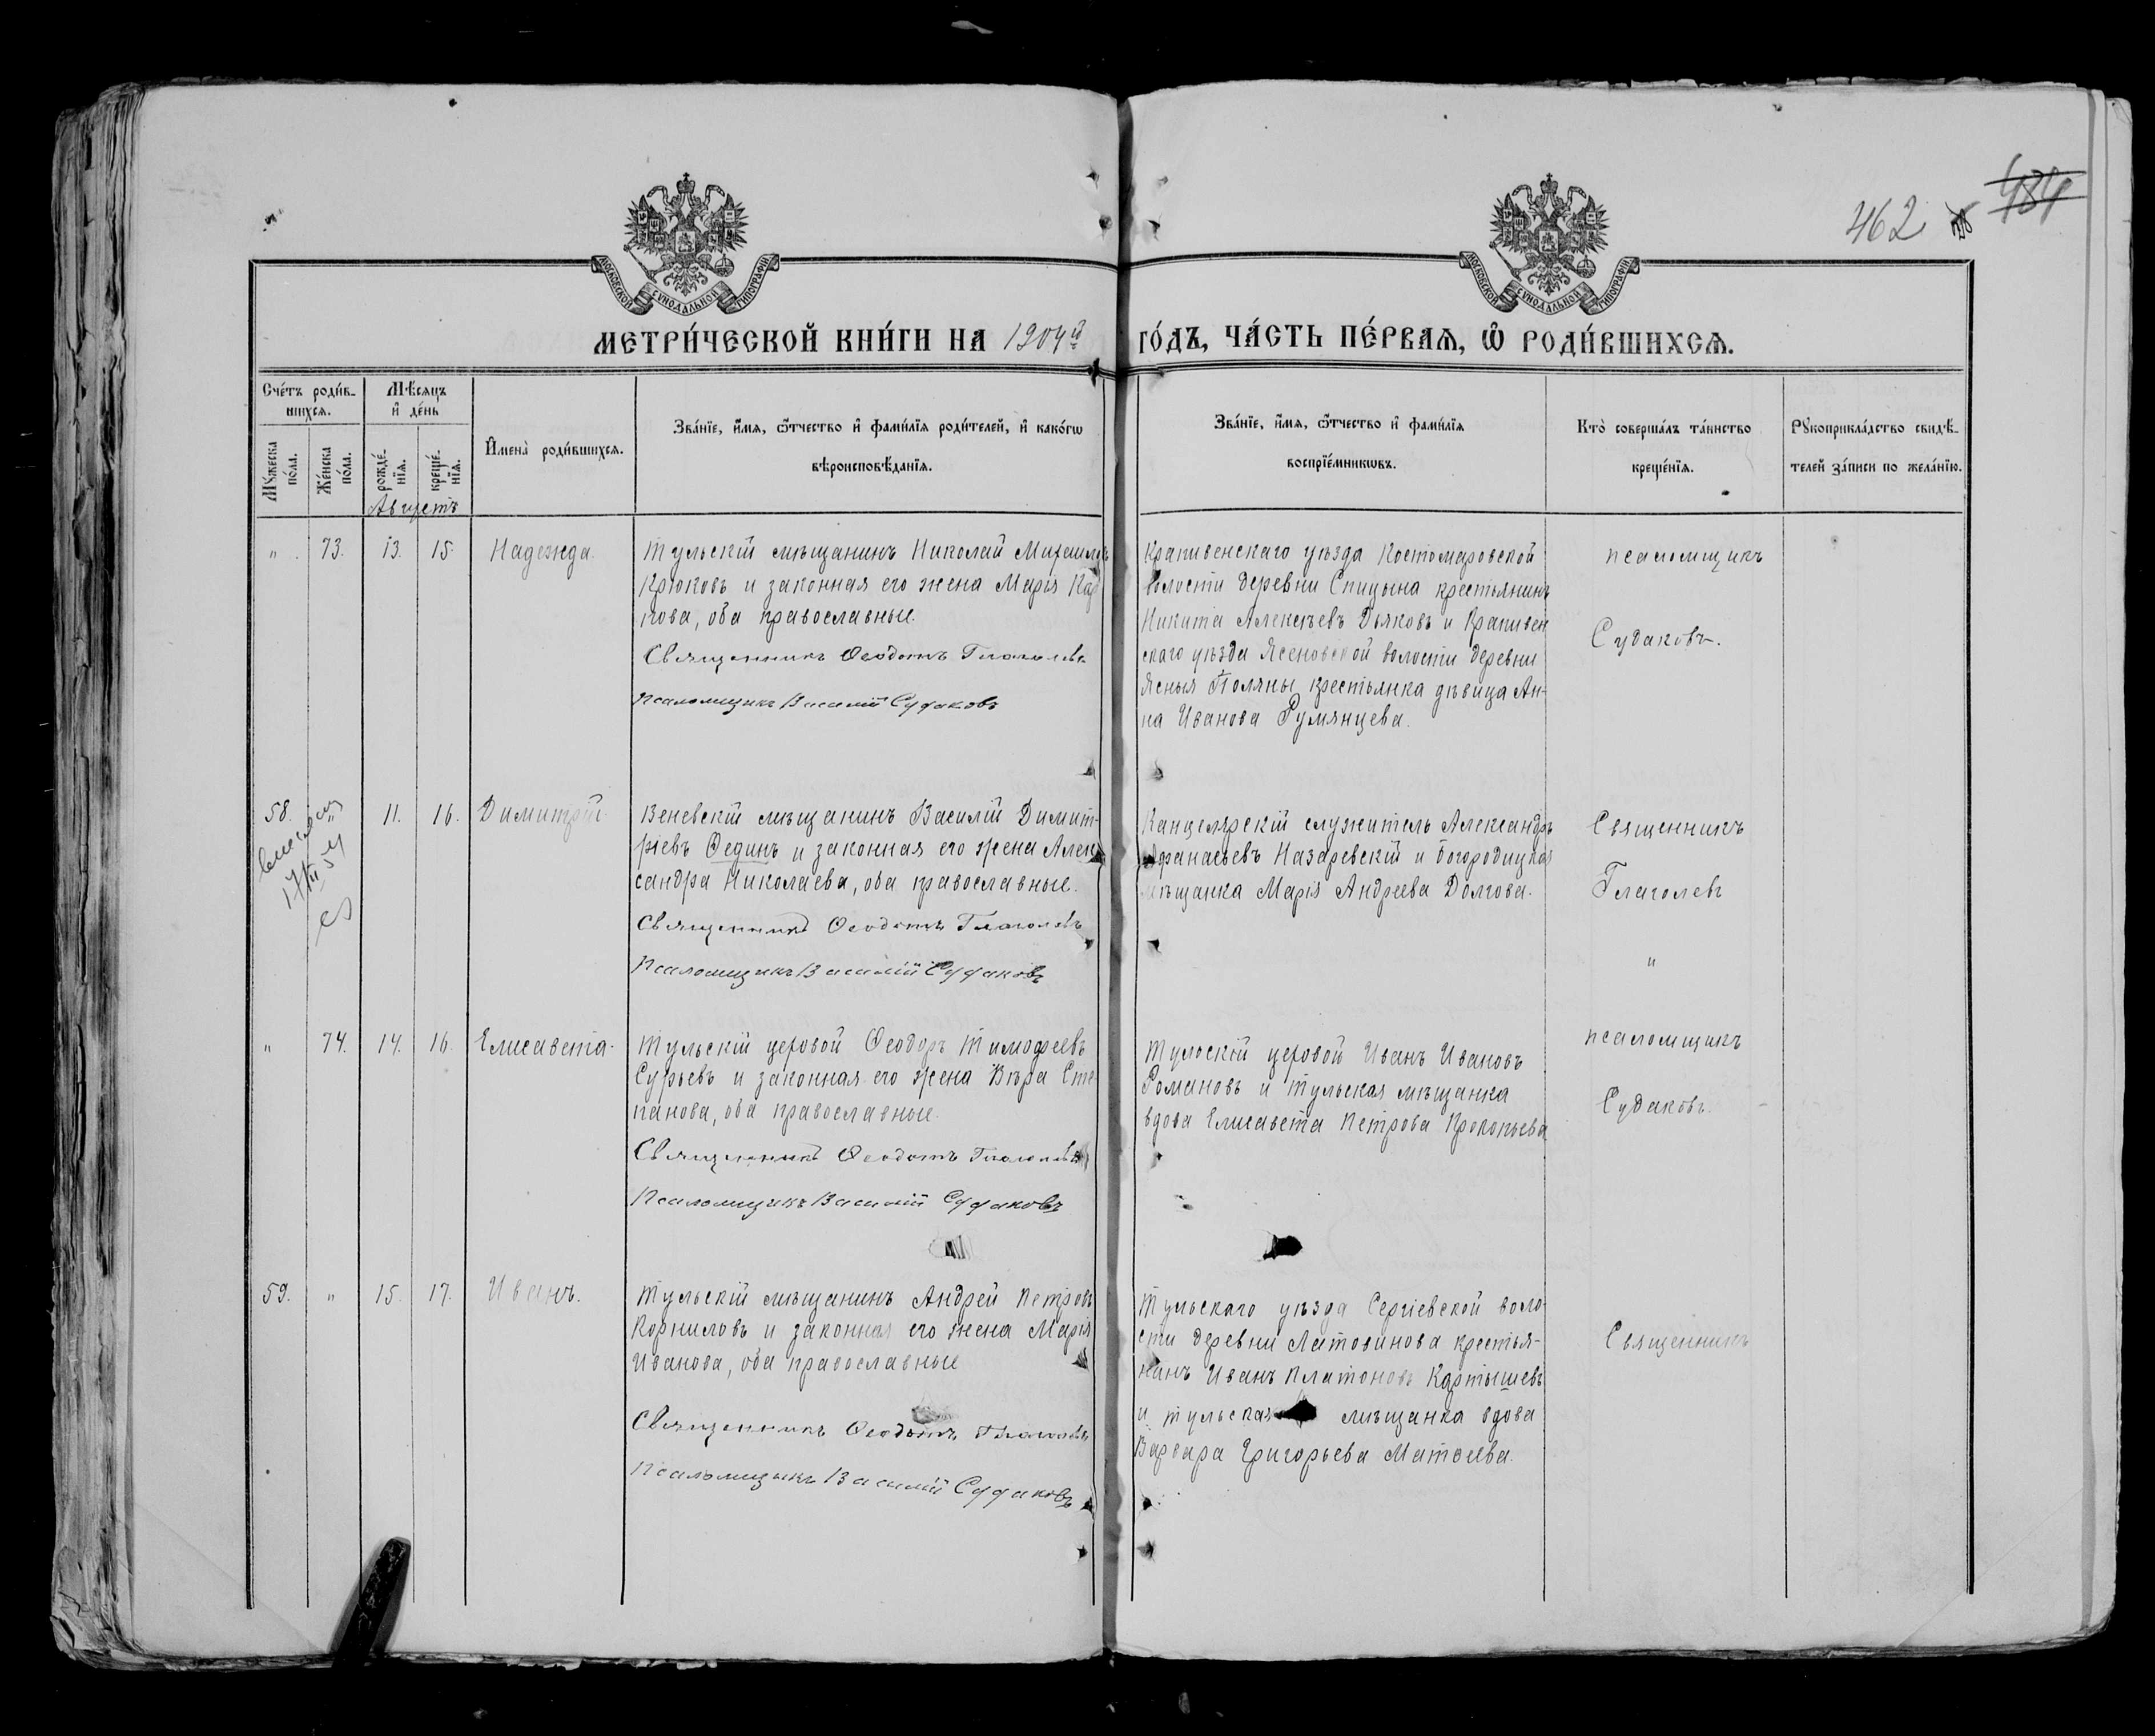 462
484
МОСКОВСКОЙ СѴНОДАЛЬНОЙ ТИПОГРАФІИ
МОСКОВСКОЙ СѴНОДАЛЬНОЙ ТИПОГРАФІИ
МЕТРИ́ЧЕСКОЙ КНИ́ГИ НА 1904й ГО́ДЪ, ЧА́СТЬ ПЕ́РВАѦ, Ѽ РОДИ́ВШИХСѦ.
Сче́тъ роди́в-
шихсѧ.
Мꙋ́жеска
по́ла.
Же́нска
по́ла.
Мѣ́сѧцъ
и҆ де́нь
рожде́-
нїѧ.
креще́-
нїѧ.
Августъ
И҆мена̀ роди́вшихсѧ.
Зва́нїе, и҆́мѧ, ѻ҆́тчество и҆ фами́лїѧ роди́телей, и҆ како́гѡ
вѣроисповѣ́данїѧ.
Зва́нїе, и҆́мѧ, ѻ҆́тчество и҆ фами́лїѧ
воспрїе́мникѡвъ.
Кто̀ соверша́лъ та́инство
креще́нїѧ.
Рꙋкоприкла́дство свидѣ́-
телей за́писи по жела́нїю.
" 73. 13. 15. Надежда.
Тульскій мѣщанинъ Николай Михаиловъ
Крюковъ и законная его жена Марія Кар
пова, оба православные.
Священникъ Ѳеодотъ Глаголевъ
Псаломщикъ Василій Судаковъ
Крапивенскаго уѣзда Костомаровской
волости деревни Спицына крестьянинъ
Никита Алексѣевъ Дьяковъ и Крапивен
скаго уѣзда Ясеновской волости деревни
Ясныя Поляны крестьянка дѣвица Ан-
на Иванова Румянцева.
псаломщикъ
Судаковъ.
58. " 11. 16. Димитрій.
17/III 54
Веневскій мѣщанинъ Василій Димит-
ріевъ Ѳединъ и законная его жена Алек
сандра Николаева, оба православные.
Священникъ Ѳеодотъ Глаголевъ
Псаломщикъ Василій Судаковъ
Канцелярскій служитель Александръ
Афанасьевъ Назаревскій и богородицкая
мѣщанка Марія Андреева Долгова.
Священникъ
Глаголевъ
"
" 74. 14. 16. Елисавета.
Тульскій цеховой Ѳеодоръ Тимофеевъ
Сурьевъ и законная его жена Вѣра Сте
панова, оба православные.
Священникъ Ѳеодотъ Глаголевъ
Псаломщикъ Василій Судаковъ
Тульскій цеховой Иванъ Ивановъ
Романовъ и тульская мѣщанка
вдова Елисавета Петрова Прокопьева
псаломщикъ
Судаковъ.
59. " 15. 17. Иванъ.
Тульскій мѣщанинъ Андрей Петровъ
Корниловъ и законная его жена Марія
Иванова, оба православные
Священникъ Ѳеодотъ Глаголевъ
Псаломщикъ Василій Судаковъ
Тульскаго уѣзда Сергіевской воло-
сти деревни Латовинова крестья-
нинъ Иванъ Платоновъ Картышевъ
и тульская мѣщанка вдова
Варвара Григорьева Матвеева.
Священникъ